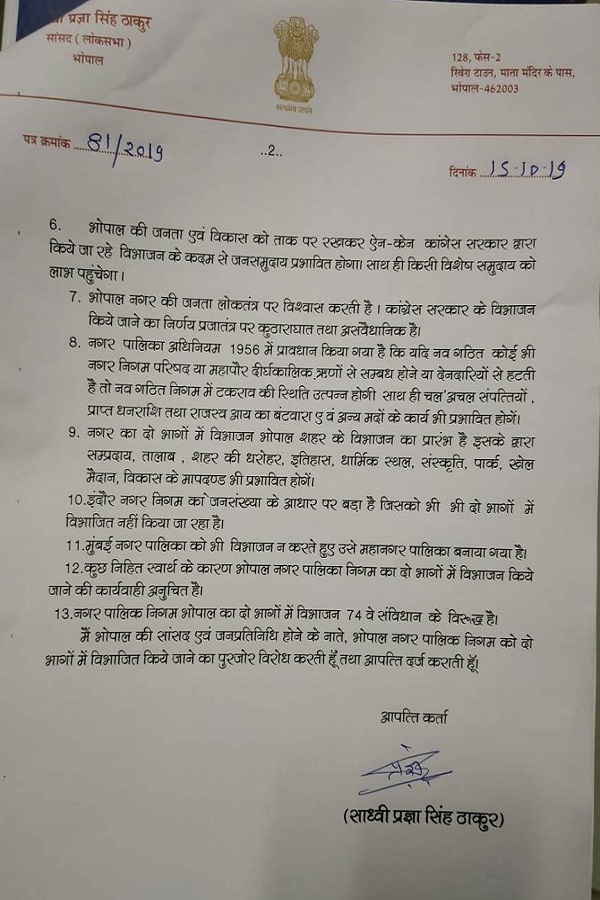 वी प्रज्ञा सिंह ठाकुर
सांसद ( लोकसभा )
भोपाल
सत्यमेव जयते
128, फेस-2
रिवेरा टाउन, माता मंदिर के पास,
भोपाल-462003
पत्र क्रमांक 81/2019
..2..
दिनांक 15-10-19
6. भोपाल की जनता एवं विकास को ताक पर रखकर ऐन-केन कांग्रेस सरकार द्वारा
किये जा रहे विभाजन के कदम से जनसमुदाय प्रभावित होगा। साथ ही किसी विशेष समुदाय को
लाभ पहुंचेगा ।
7. भोपाल नगर की जनता लोकतंत्र पर विश्वास करती है । कांग्रेस सरकार के विभाजन
किये जाने का निर्णय प्रजातंत्र पर कुठाराघात तथा असवैधानिक है।
8. नगर पालिका अधिनियम 1956 में प्रावधान किया गया है कि यदि नव गठित कोई भी
नगर निगम परिषद या महापौर दीर्घकालिक ऋणों से सम्बध होने या देनदारियों से हटती
है तो नव गठित निगम में टकराव की स्थिति उत्पन्न होगी साथ ही चल अचल संपत्तियों ,
प्राप्त धनराशि तथा राजस्व आय का बंटवारा ए वं अन्य मदों के कार्य भी प्रभावित होगें।
9. नगर का दो भागों में विभाजन भोपाल शहर के विभाजन का प्रारंभ है इसके द्वारा
सम्प्रदाय, तालाब , शहर की धरोहर, इतिहास, धार्मिक स्थल, संस्कृति, पार्क, खेल
मैदान, विकास के मापदण्ड भी प्रभावित होगें।
10. इंदौर नगर निगम का जनसंख्या के आधार पर बड़ा है जिसको भी भी दो भागों में
विभाजित नहीं किया जा रहा है।
11. मुंबई नगर पालिका को भी विभाजन न करते हुए उसे महानगर पालिका बनाया गया है।
12. कुछ निहित स्वार्थ के कारण भोपाल नगर पालिका निगम का दो भागों में विभाजन किये
जाने की कार्यवाही अनुचित है।
13. नगर पालिक निगम भोपाल का दो भागों में विभाजन 74 वे संविधान के विरूद्ध है।
मैं भोपाल की सांसद एवं जनप्रतिनिधि होने के नाते, भोपाल नगर पालिक निगम को दो
भागों में विभाजित किये जाने का पुरजोर विरोध करती हूँ तथा आपत्ति दर्ज कराती हूँ।
आपत्ति कर्ता
(साध्वी प्रज्ञा सिंह ठाकुर)